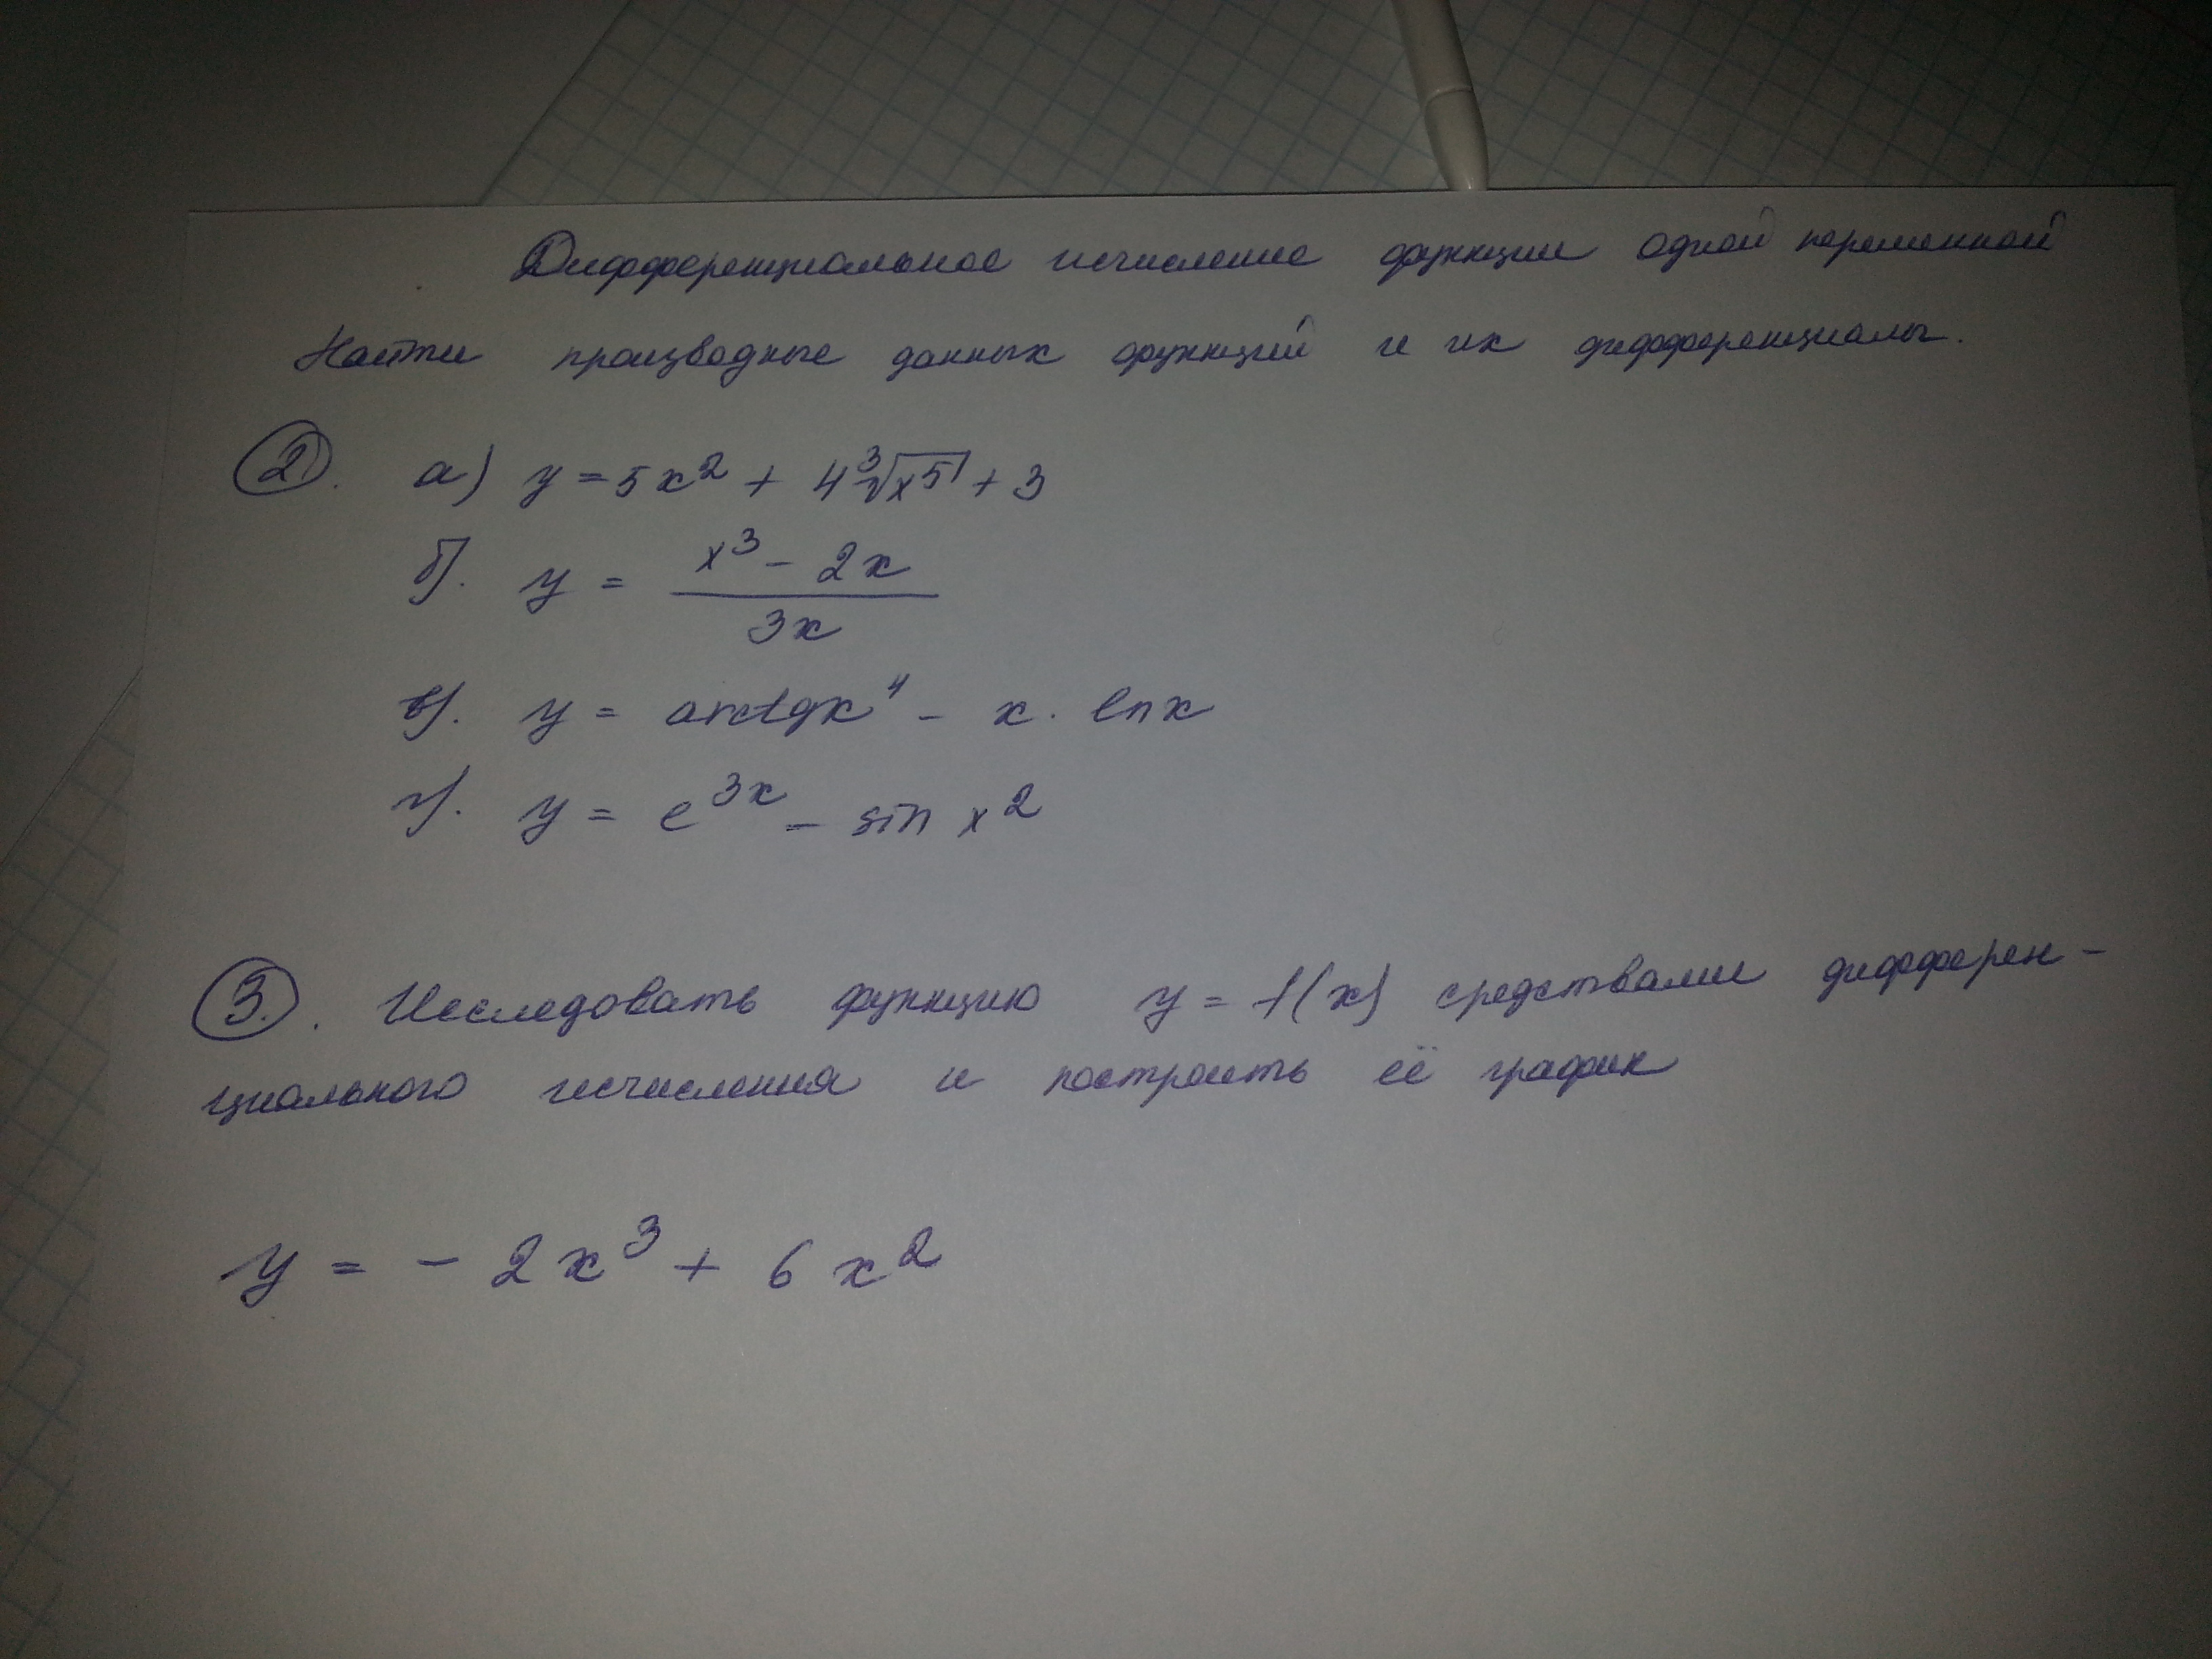 Дифференциальное исчисление функции одной переменной
Найти производные данных функций и их дифференциалы.
2. а) y = 5x² + 4∛x⁵ + 3
б). y = (x³ - 2x) / 3x
в). y = arctgx⁴ - x · lnx
г). y = e³ˣ - sin x²
3. Исследовать функцию y = f(x) средствами дифферен-
циального исчисления и построить её график
y = - 2x³ + 6x²